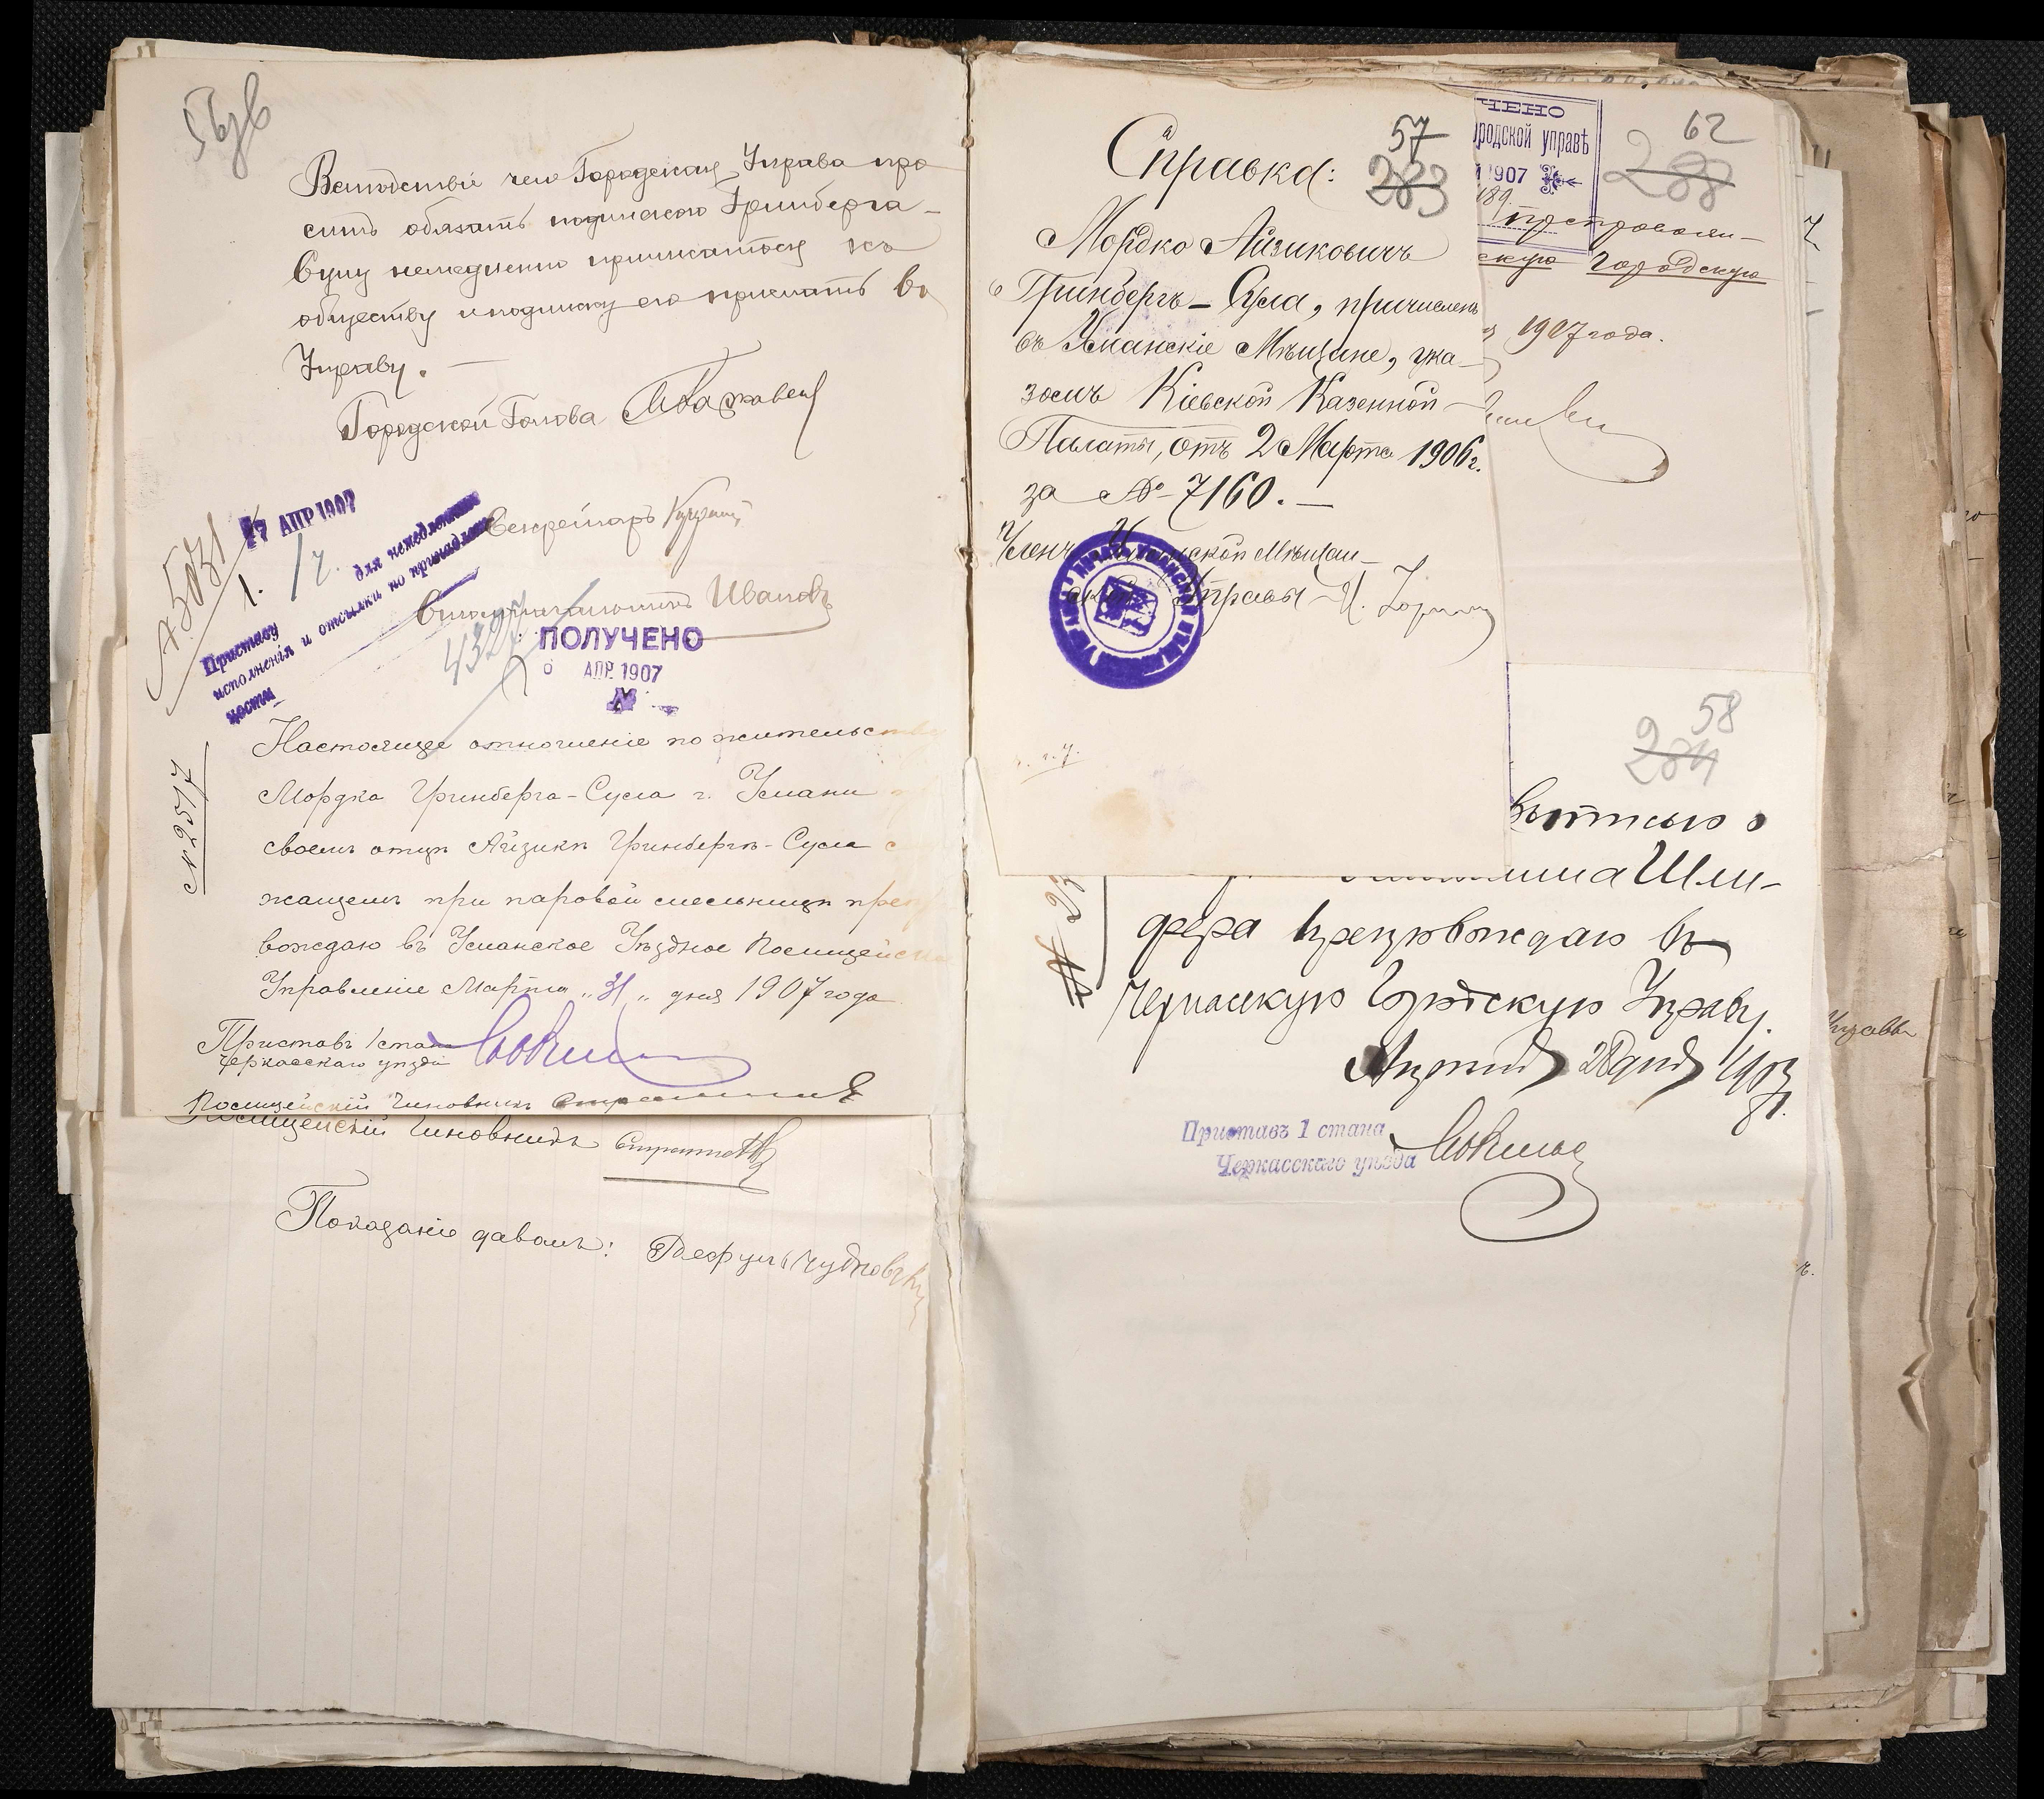 56об
Вслѣдствіе чего Городская Управа про
ситъ обязать подпискою Гринберга-
Сулу немедленно приписаться къ
обществу и подписку его прислать въ
Управу. —
Городской Голова
Секретарь
Столоначальникъ Ивановъ
17 АПР 1907
А. 5031
1.
Приставу для немедленнаго
исполненія и отсылки по принадлеж
ности
4327
ПОЛУЧЕНО
6 АПР. 1907
№
№ 2517
Настоящее отношеніе по жительству
Мордка Гринберга-Сула г. Умани
своемъ отцѣ Айзикѣ Гринбергѣ-Сула с
жащемъ при паровой мельницѣ препро
вождаю въ Уманское Уѣздное Полицейское
Управленіе Марта „31„ дня 1907 года
Приставъ 1 стана
Черкасскаго уѣзда
Полицейскій Чиновникъ
Полицейскій Чиновникъ
Показаніе давалъ:
57
283
Справка:
Мордко Айзиковичъ
Гринбергъ-Сула, причисленъ
въ Уманскіе Мѣщане, ука-
зомъ Кіевской Казенной
Палаты, отъ 2 Марта 1906 г.
за № 7160. —
Членъ Уманской Мѣщан-
ской Управы
62
288
ЧЕНО
ородской управѣ
1907
189
скую Городскую
1907 года.
58
284
Шли-
фера препровождаю въ
Черкасскую Городскую Управу.
Приставъ 1 стана
Черкасскаго уѣзда